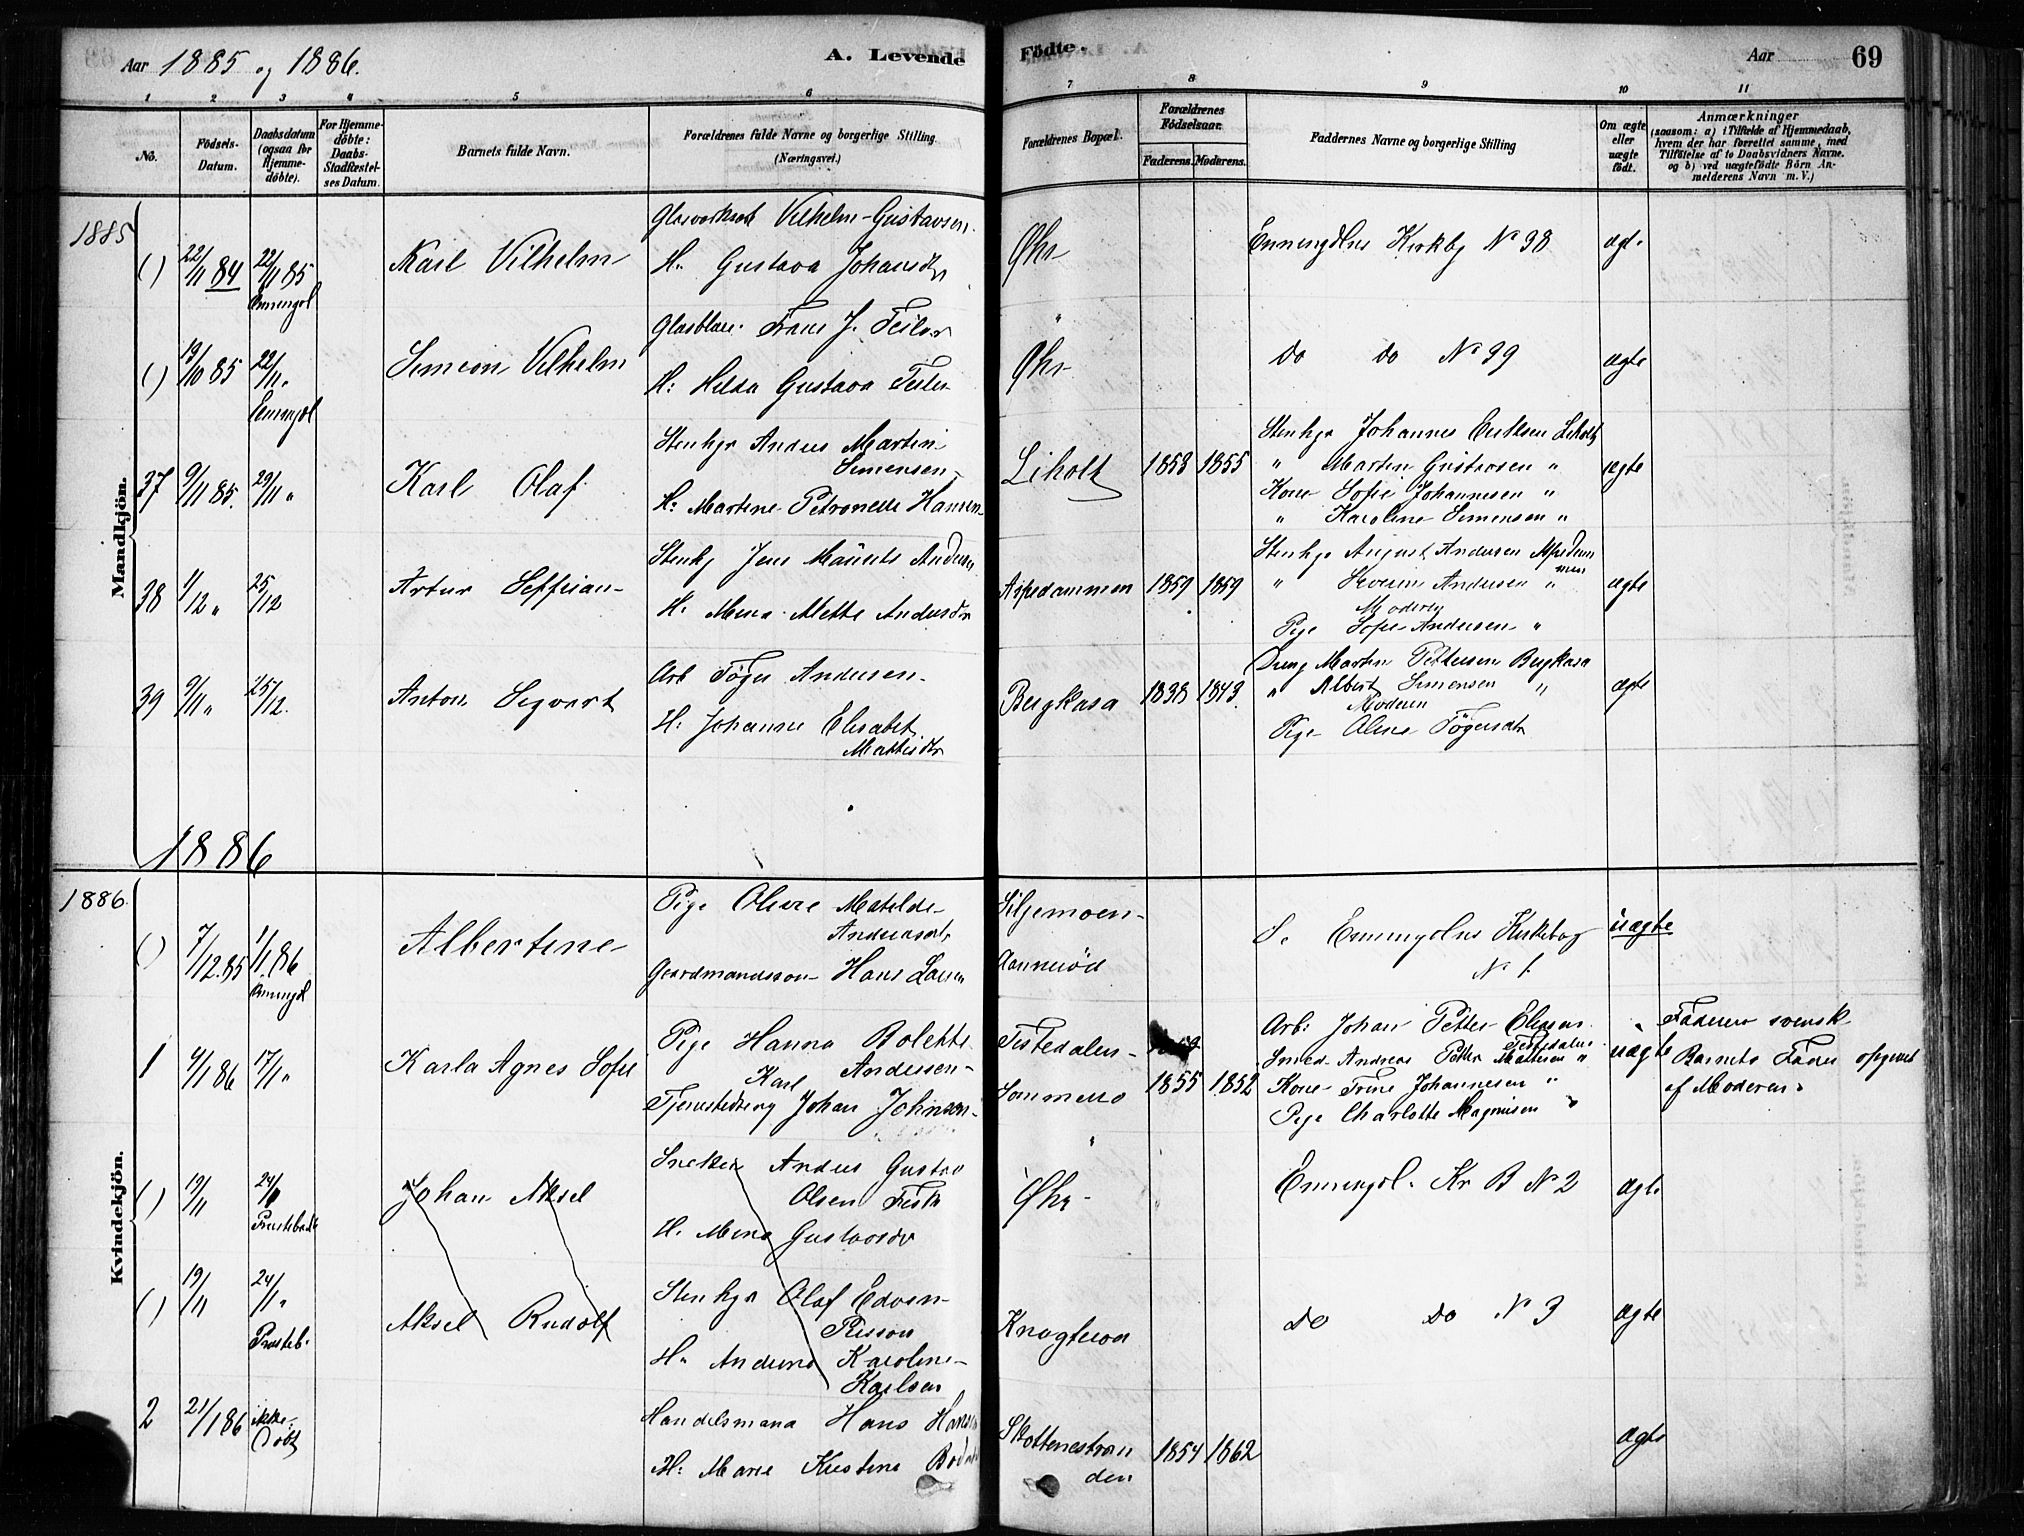 Aar 1885 og 1886.
A. Levende
Födte.
Aar
69
1 2 3 4 5 6 7 8 9 10 11
No.
Födsels-
Datum.
Daabsdatum
(ogsaa for
Hjemme-
döbte).
For Hjemme-
döbte:
Daabs-
Stadfæstel-
ses Datum.
Barnets fulde Navn.
Forældrenes fulde Navne og borgerlige Stilling
(Næringsvei.)
Forældrenes Bopæl.
Forældrenes
Födselsaar.
Faderens. Moderens.
Faddernes Navne og borgerlige Stilling
Om ægte
eller
uægte
født.
Anmærkninger
(saasom: a) i Tilfælde af Hjemmedaab,
hvem der har forrettet samme, med
Tilföielse af to Daabsvidners Navne.
og b) ved uægtefödte Börn An-
melderens Navn m. V.)
Mandkjön.
1885
( ) 22/11 84 22/11 85
Karl Vilhelm
Vilhelm Gustavsen
H. Gustava Johansdtr
Øhr
Enningdlns Kirkbg No 38
ægt.
( ) 19/10 85 22/11 "
Simeon Vilhelm
Glasblæs. Frans J. Feiler
H: Hilda Gustava Feiler
Øhr
do do No 39
ægte
37 9/11 85. 29/11 "
Karl Olaf
Stenhgr Andus Martin
Simensen
H: Martine Petronelle Hansen
Liholt
1858 1855
Stenhgr Johannes Eriksen Liholt
" Martin Gustavsen "
Kone Sofie Johannesen "
" Karoline Simensen "
ægte
38 1/12 " 25/12
Artur Seffrian
Stenhg Jens Maurits Andersen
H. Mina Mette Andersdtr
Aspedammen
1859 1859
Stenhgr August Andersen Aspedam
men
" Severin Andersen "
Moderen
Pige Sofie Andersen "
ægte
39 9/11 " 25/12.
Anton Sigvart
Arb Töger Andersen
H: Johanne Elisabet
Mathisdtr
Bergkasa
1838 1843.
Ung Martin Pettersen Bergkasa
" Albert Simensen "
Moderen
Pige Oline Tögersdtr
ægte
1886
Kvindekjön.
1886
( ) 7/12.85 1/1.86
Albertine
Pige Olivie Matilde
Andersdtr
Gaardmandssøn Hans Larsen
Siljemoen
Aannerød
S. Enningdlns Kirkebog
No 1.
uægte
1 4/1 86 17/1 "
Karla Agnes Sofie
Pige Hanna Bolette
Andersen
Karl
Johan Johnson
Tistedalen
Sommero
1855 1852
Arb: Johan Petter Eliasen
Tistedalen
Smed Andreas Petter Mattesen "
Kone Trine Johannesen "
Pige Charlotte Magnusen "
uægte
Faderen svensk
Barnets Fader opgivet
af Moderen.
( ) 19/11 24/1
Johan Aksel
Snekker Andus Gustav
Olsen Fisk
H. Mina Gustavsdr
Øhr
Enningdl. Kr B No 2
ægte
( ) 19/11 24/1 "
Presteb.
Aksel Rudolf
Stenhgr Olaf Edvin
H. Andrine Karoline
Karlsen
do do No 3
ægte
2 21/1 86 ikke
Døbt
Handelsmand Hans Hansen
H: Marie Kristine
Skottenestran
den
1854 1862
ægte